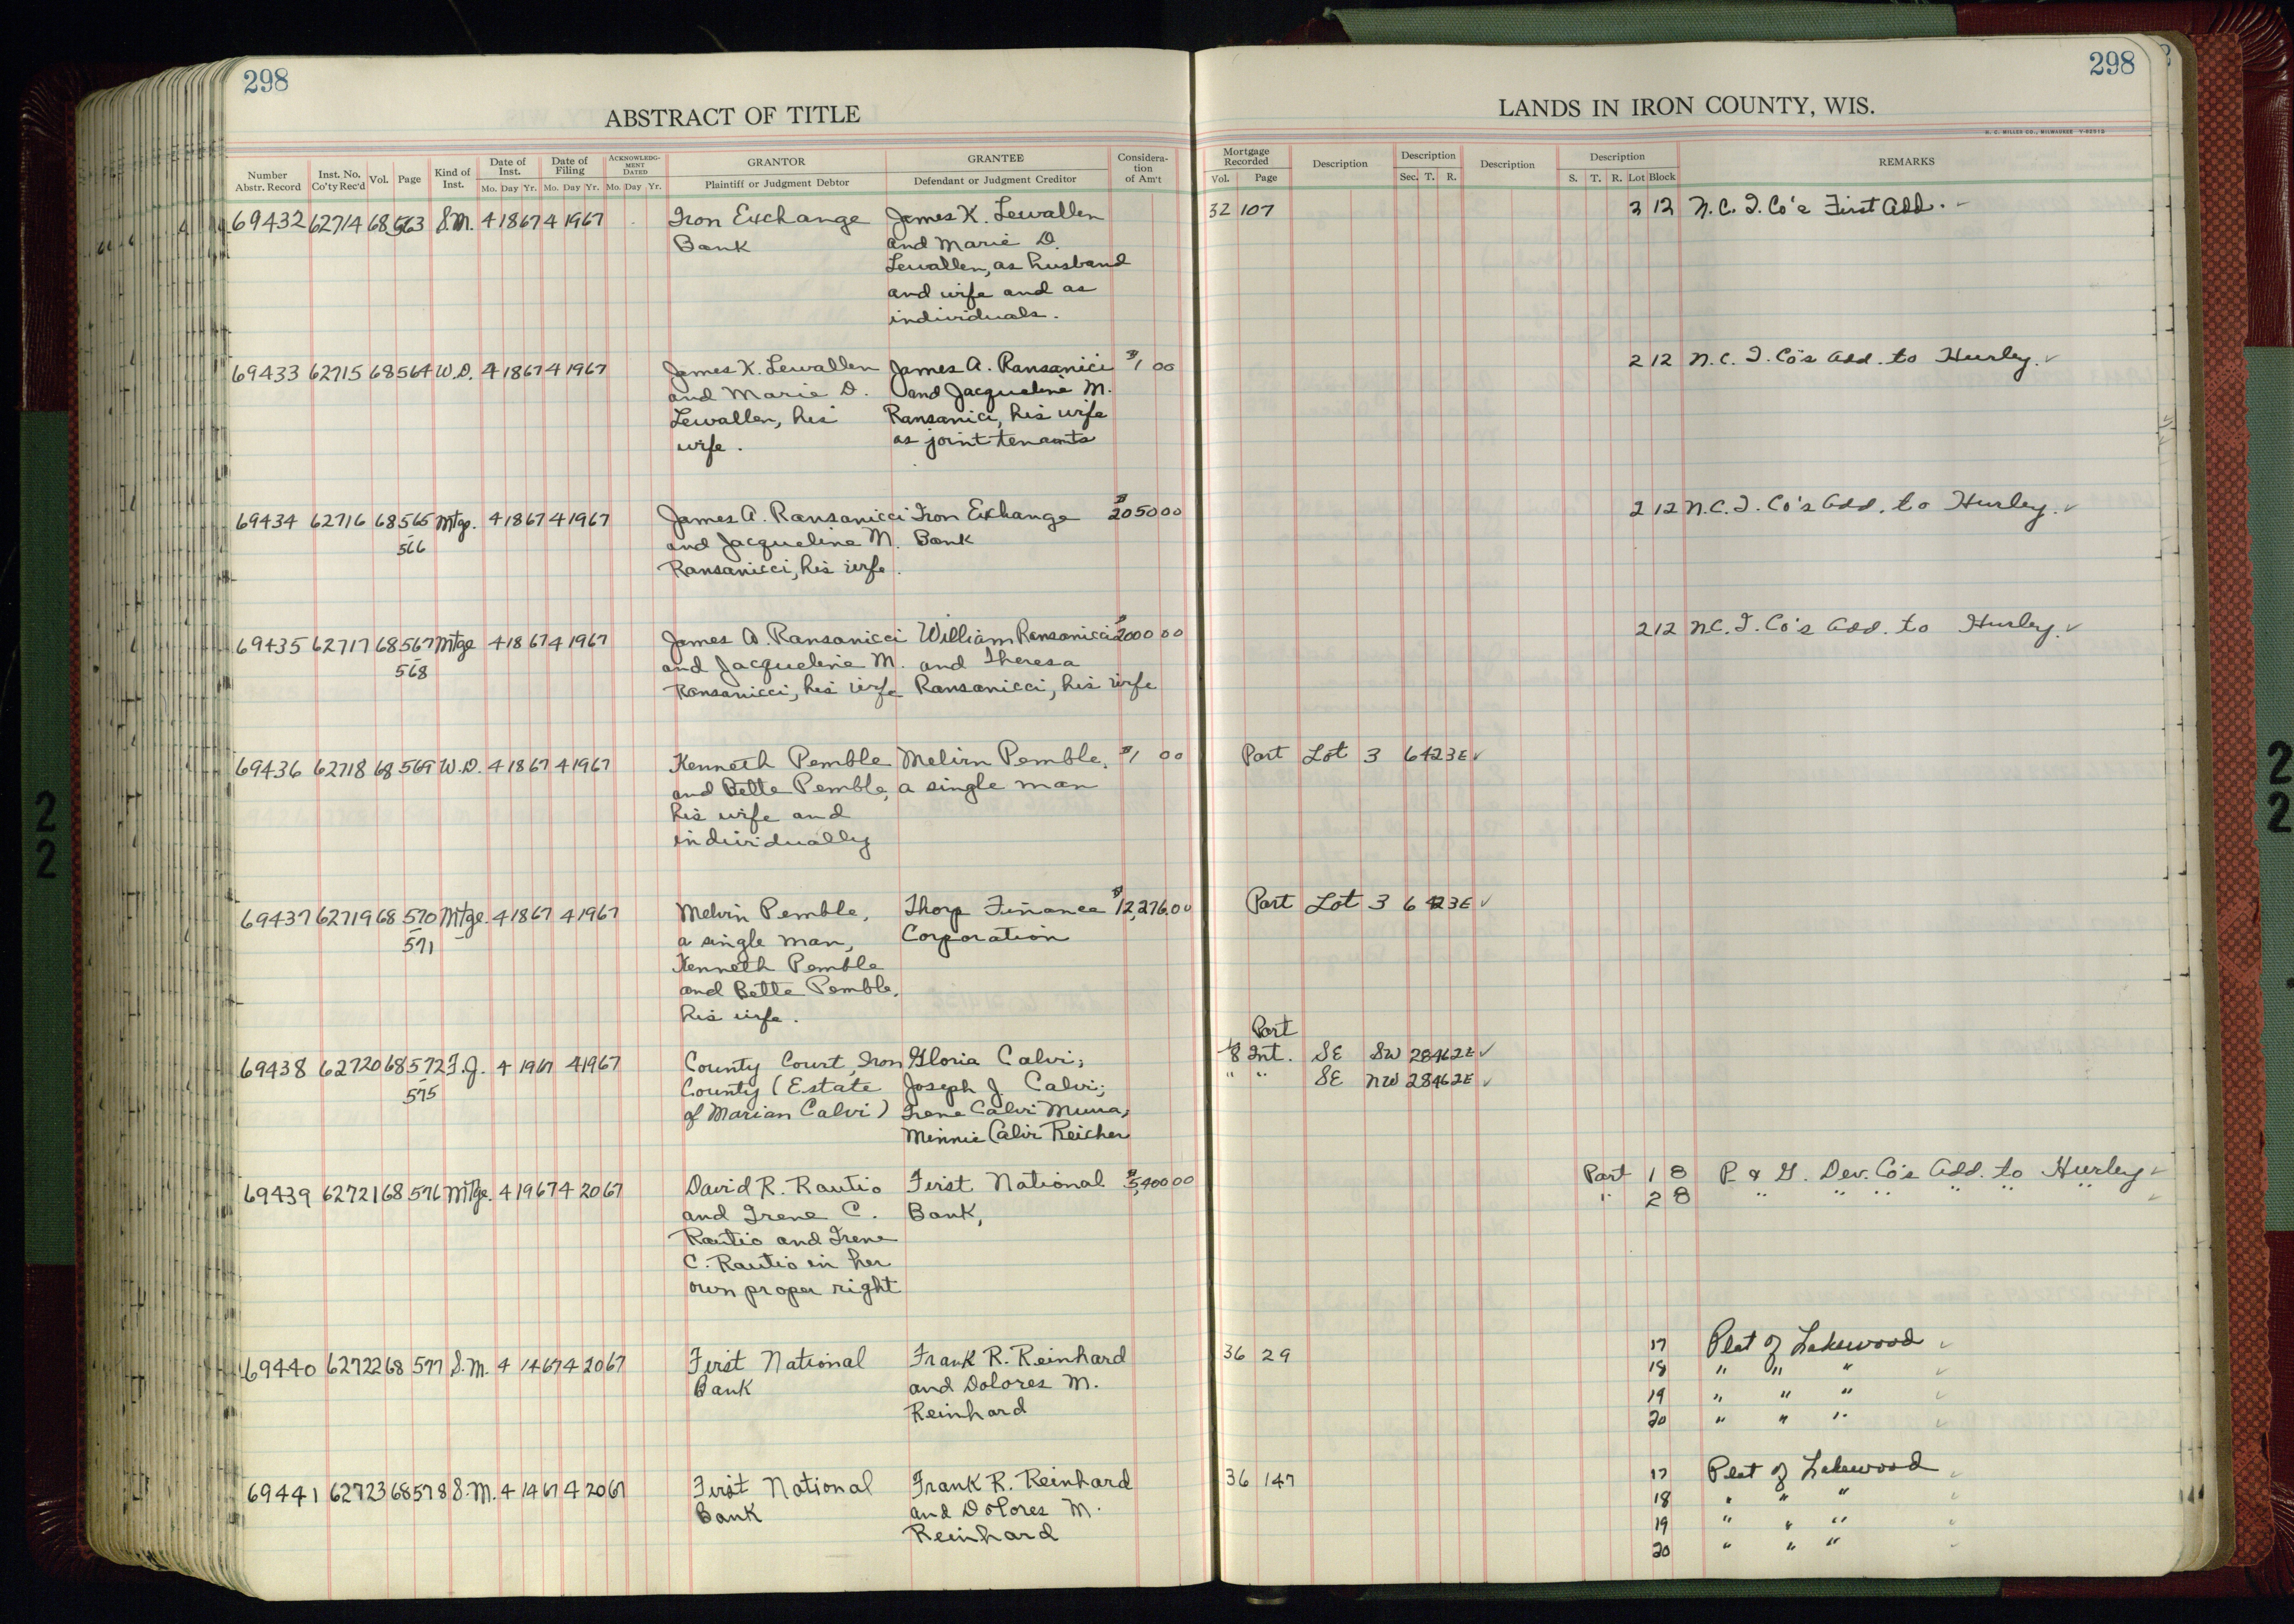 298
298
ABSTRACT OF TITLE
LANDS IN IRON COUNTY, WIS.
H. C. MILLER CO., MILWAUKEE
Number Abstr. Record | Inst. No. Co'ty Rec'd | Vol. | Page | Kind of Inst. | Date of Inst. Mo. Day Yr. | Date of Filing Mo. Day Yr. | ACKNOWLEDGMENT DATED Mo. Day Yr. | GRANTOR Plaintiff or Judgment Debtor | GRANTEE Defendant or Judgment Creditor | Consideration of Am't | Mortgage Recorded Vol. Page | Description | Description Sec. T. R. | Description | Description S. T. R. Lot Block | REMARKS
69432 62714 68 563 S.M. 4 18 67 4 19 67 Iron Exchange James K. Lewallen 32 107 2 12 N.C.I. Co's First Add.
Bank and Marie D.
Lewallen, as husband
and wife and as
individuals.
69433 62715 68 564 W.D. 4 18 67 4 19 67 James K. Lewallen James A. Ransanici $1 00 2 12 N.C.I. Co's Add. to Hurley.
and Marie D. and Jacqueline M.
Lewallen, his Ransanici, his wife
wife. as joint tenants
69434 62716 68 565 Mtge. 4 18 67 4 19 67 James A. Ransanicci Iron Exchange $2050 00 2 12 N.C.I. Co's Add. to Hurley.
- 566 and Jacqueline M. Bank
Ransanicci, his wife.
69435 62717 68 567 Mtge 4 18 67 4 19 67 James A. Ransanicci William Ransanicci $2000 00 2 12 N.C.I. Co's Add. to Hurley.
- 568 and Jacqueline M. and Theresa
Ransanicci, his wife Ransanicci, his wife
69436 62718 68 569 W.D. 4 18 67 4 19 67 Kenneth Pemble Melvin Pemble, $1 00 Part Lot 3 6 42 3E
and Bette Pemble, a single man
his wife and
individually
69437 62719 68 570 Mtge. 4 18 67 4 19 67 Melvin Pemble, Thorp Finance $12,276.00 Part Lot 3 6 42 3E
- 571 a single man, Corporation
Kenneth Pemble
and Bette Pemble,
his wife.
Part
69438 62720 68 572 F.J. 4 19 67 4 19 67 County Court, Iron Gloria Calvi; 1/8 Int. SE SW 28 46 2E
- 575 County (Estate Joseph J. Calvi; " " SE NW 28 46 2E
of Marian Calvi) Irene Calvi Muna,
Minnie Calvi Reicher
69439 62721 68 576 Mtge. 4 19 67 4 20 67 David R. Rautio First National $5,400 00 Part 1 8 P. & G. Dev. Co's Add. to Hurley
and Irene C. Bank, " 2 8 " " " " " "
Rautio and Irene
C. Rautio in her
own proper right
69440 62722 68 577 S.M. 4 14 67 4 20 67 First National Frank R. Reinhard 36 29 17 Plat of Lakewood
Bank and Dolores M. 18 " " "
Reinhard 19 " " "
20 " " "
69441 62723 68 578 S.M. 4 14 67 4 20 67 First National Frank R. Reinhard 36 147 17 Plat of Lakewood
Bank and Dolores M. 18 " " "
Reinhard 19 " " "
20 " " "
22
22